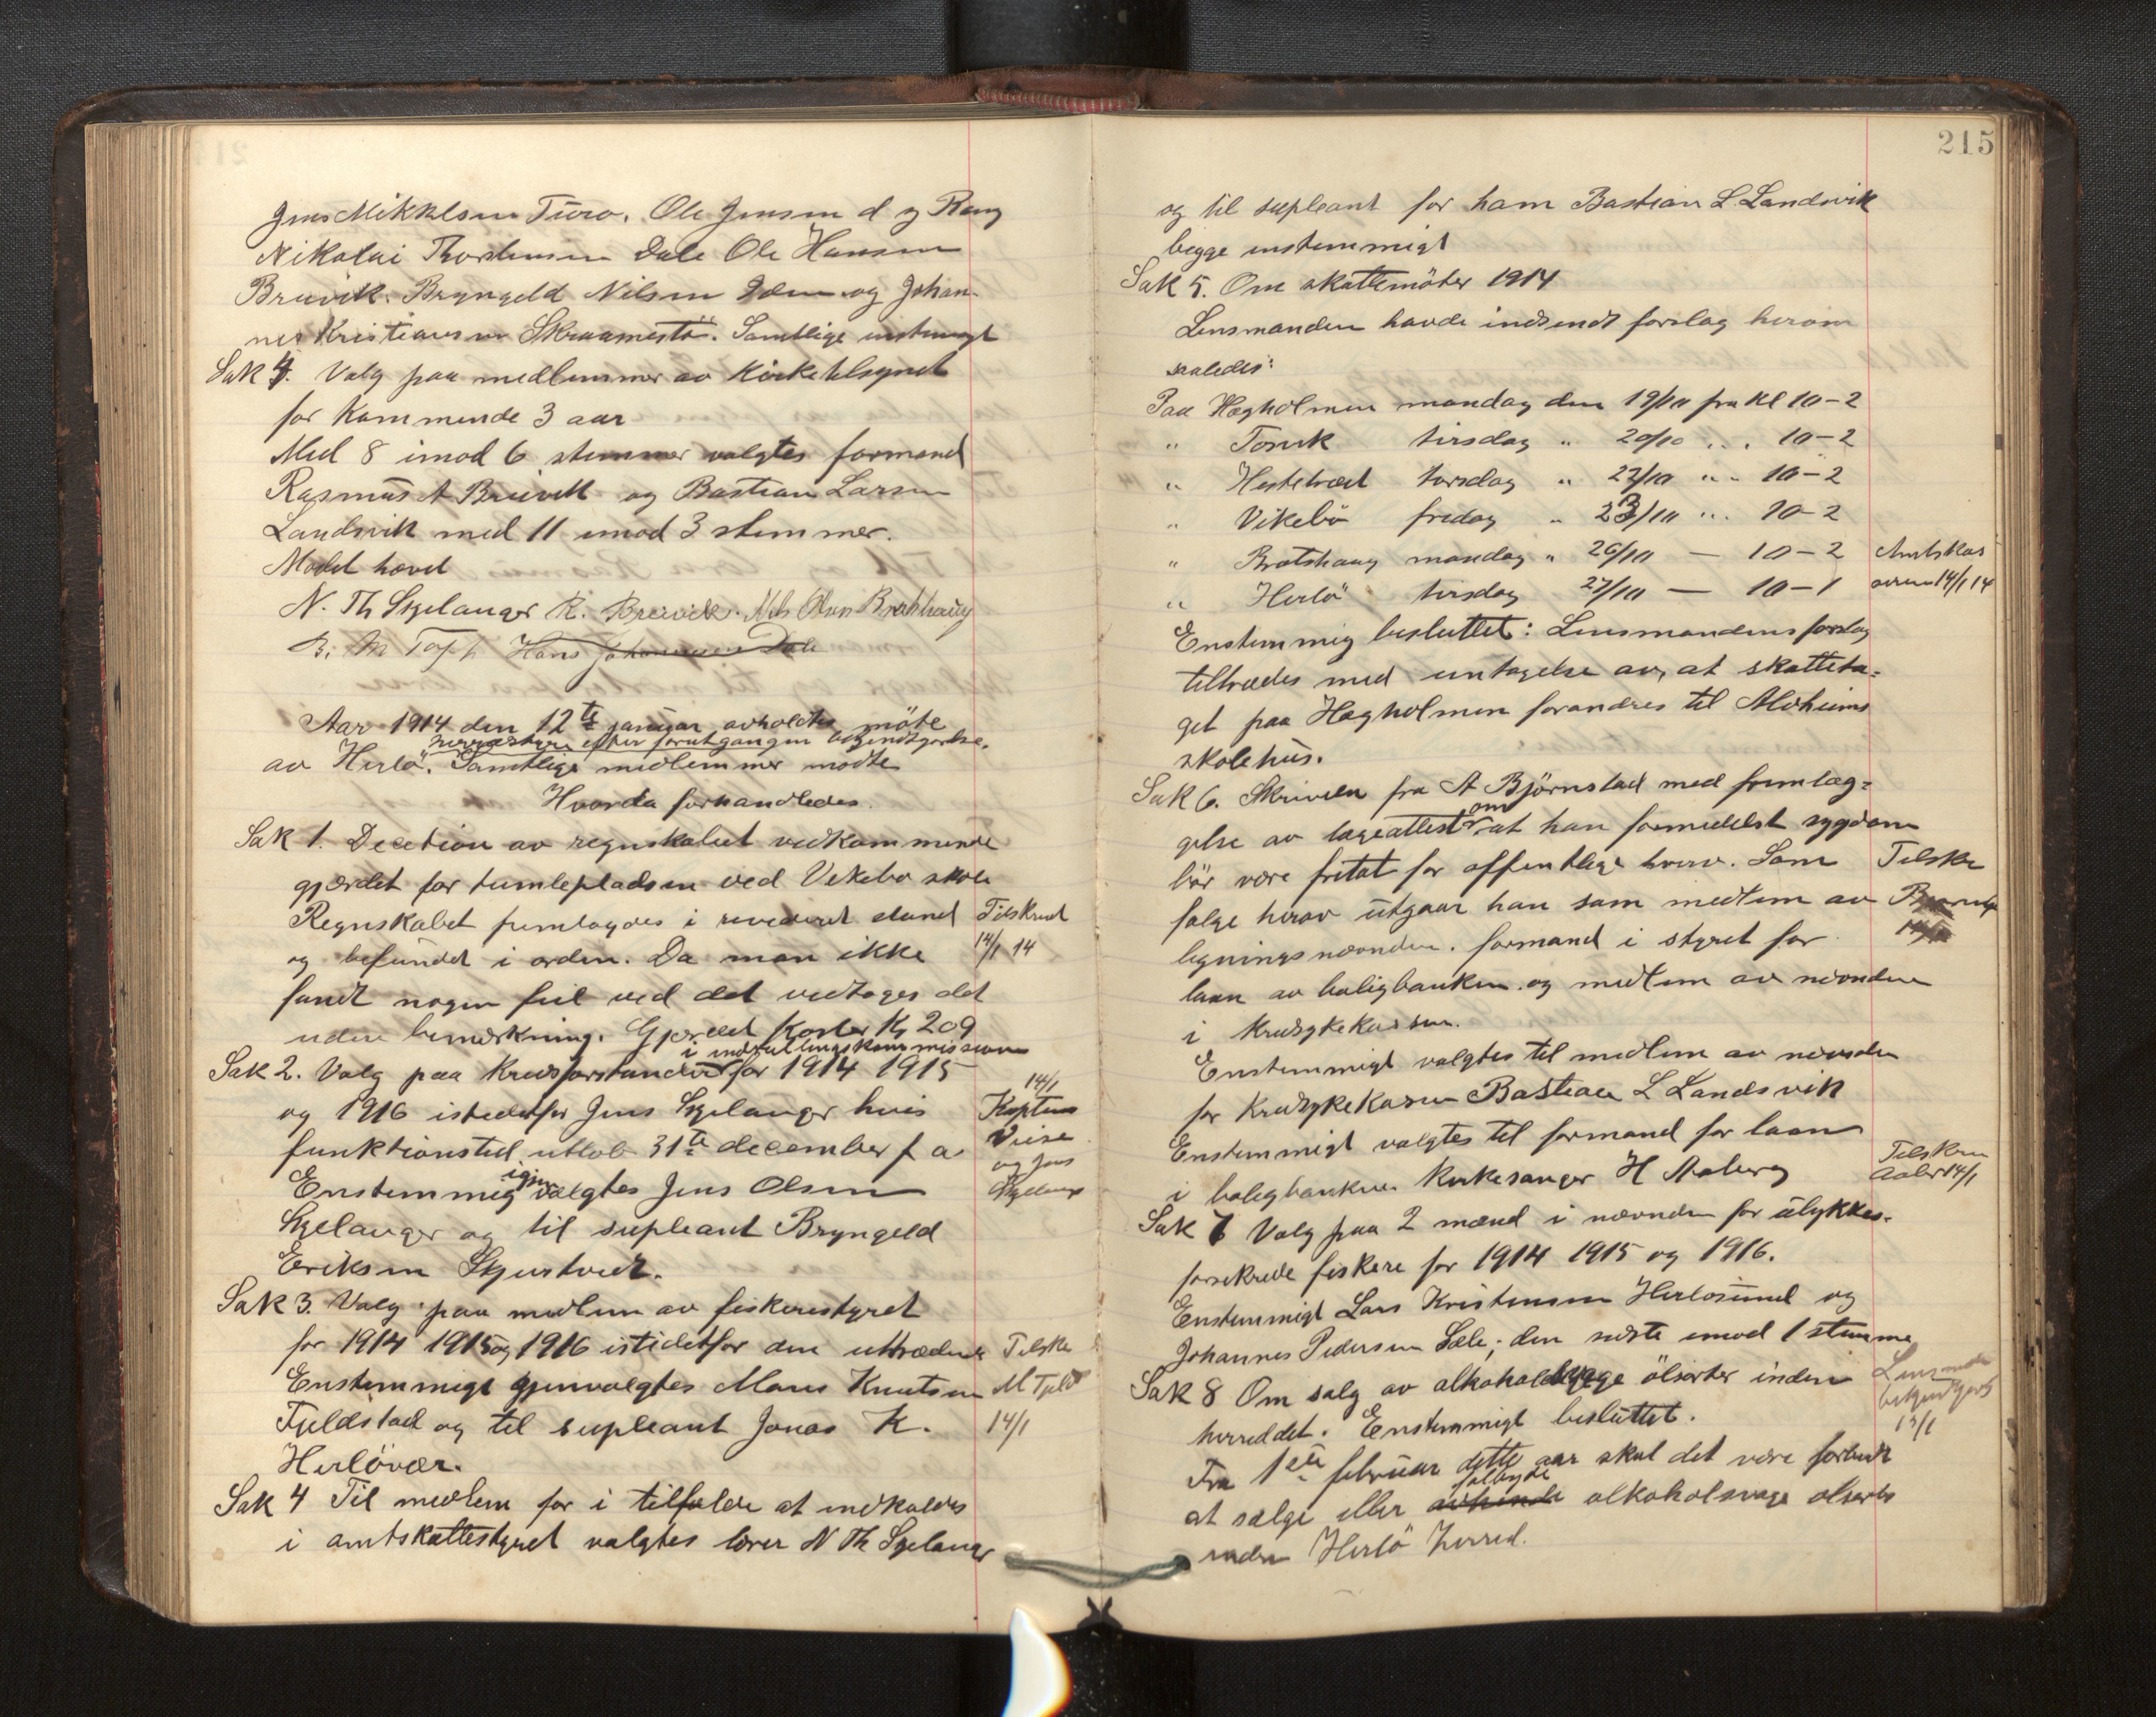 Jens Mikkelsen Turø. Ole Jensen d y Rong
Nikolai Thorstensen Dale Ole Hansen
Breivik. Bryngeld Nilsen og Johan-
nes Kristiansen Skraamestö. Samtlige enstemigt
Sak 4. Valg paa medlemmer av Kirketilsynet
for kommende 3 aar
Med 8 imod 6 stemmer valgtes formand
Rasmus A Breivik og Bastian Larsen
Landsvik med 11 imod 3 stemmer.
Mødet hævet
N. Th Sygelanger R. Breivik. Nils Olsen Bratshaug
B. M Hans Johannesen Dale
Aar 1914 den 12te januar avholdtes møte
herredstyre efter forutgangen bekjendtgjørelse.
av Herlø. Samtlige medlemmer mødte
Hvorda forhandledes.
Sak 1. Decetion av regnskabet vedkommende
gjærdet for tumlepladsen ved Vikebø skole
Regnskabet fremlagdes i revideret stand
Tilskrevet
og befundet i orden. Da man ikke
14/1 14
fandt nogen feil ved det vedtages det
uden bemerkning. Gjærdet koster Kr 209
i indrulleringskommissionen
Sak 2. Valg paa kredsforstander for 1914 1915
14/1
og 1916 istedetfor Jens Sygelanger hvis
Kaptein
funktionstid utløb 31te december f a
og Jens
Sygelanger
igjen
Enstemmig valgtes Jens Olsen
Sygelanger og til supleant Bryngeld
Eriksen Skjurtveit.
Sak 3. Valg paa medlem av fiskeristyret
for 1914 1915 og 1916 istedetfor den uttrædende
Tilskr
Enstemmigt gjenvalgtes Mons Knutsen
M Fjeld
Fjeldstad og til supleant Jonas K.
14/1
Herløvær.
Sak 4 Til medlem for i tilfælde at indkaldes
i amtskattestyret valgtes lærer N Th Sygelanger
215
og til supleant for ham Bastian L Landsvik
begge enstemmigt
Sak 5. Om skattemöter 1914
Lensmanden havde indsendt forslag herom
saaledes:
Paa Hagholmen mandag den 19/10 fra Kl 10-2
" Torsvik tirsdag " 20/10 " " 10-2
" Hestetræet torsdag " 22/10 " " 10-2
" Vikebö fredag " 23/10 " " 10-2
" Bratshaug mandag " 26/10 — 10-2
Amtskas
" Herlö tirsdag 27/10 — 10-1
sereren 14/1 14
Enstemmig besluttet: Lensmandens forslag
tiltrædes med untagelse av, at skatteta-
get paa Hagholmen forandres til Alvheims
skolehus.
Sak 6. Skrivelse fra A Björnstad med fremlæg-
om
gelse av lægeattest at han formedelst sygdom
bör være fritat for offentlige hverv. Som
Tilskr
følge herav utgaar han som medlem av
ligningsnævnden. formand i styret for
laan av boligbanken og medlem av nævnden
i kredsykekassen.
Enstemmigt valgtes til medlem av nævnden
for Kredsykekassen Bastian L Landsvik
Enstemmigt valgtes til formand for laan
Tilskr
i boligbanken Kirkesanger H Aaberg
Aaberg 14/1
Sak 7 Valg paa 2 mænd i nævnden for ulykkes-
forsikrede fiskere for 1914 1915 og 1916.
Enstemmigt Lars Kristensen Herløsund og
Johannes Pedersen Sæle, den sidste imod 1 stemme
Sak 8 Om salg av alkoholsvage ölsorter inden
Lensmanden
herreddet. Enstemmigt besluttet.
bekjendtgjort
13/1
Fra 1ste februar dette aar skal det være forbudt
falbyde
at sælge eller avhende alkoholsvage ølsorter
inden Herlö herred.